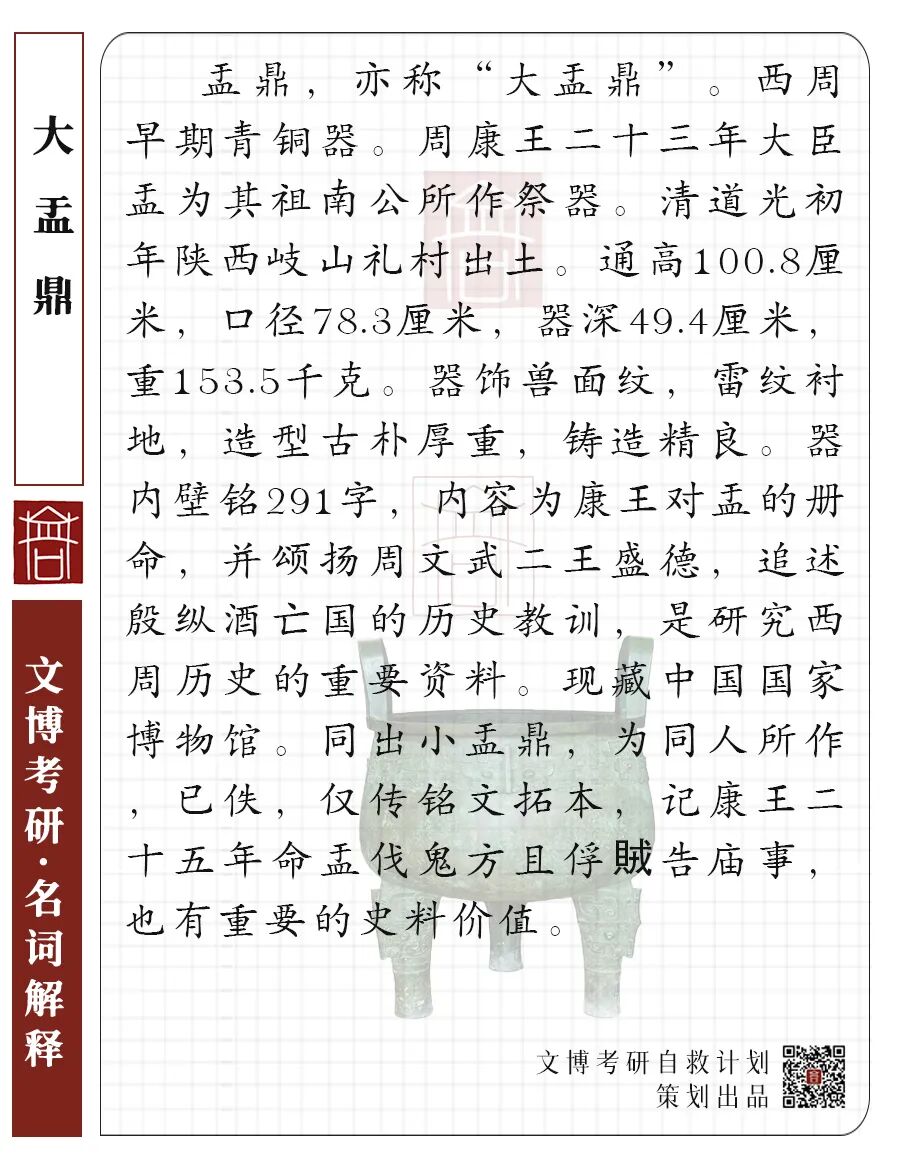 大盂鼎
文博考研·名词解释
盂鼎，亦称“大盂鼎”。西周
早期青铜器。周康王二十三年大臣
盂为其祖南公所作祭器。清道光初
年陕西岐山礼村出土。通高100.8厘
米，口径78.3厘米，器深49.4厘米，
重153.5千克。器饰兽面纹，雷纹衬
地，造型古朴厚重，铸造精良。器
内壁铭291字，内容为康王对盂的册
命，并颂扬周文武二王盛德，追述
殷纵酒亡国的历史教训，是研究西
周历史的重要资料。现藏中国国家
博物馆。同出小盂鼎，为同人所作
，已佚，仅传铭文拓本，记康王二
十五年命盂伐鬼方且俘賊告庙事，
也有重要的史料价值。
文博考研自救计划
策划出品